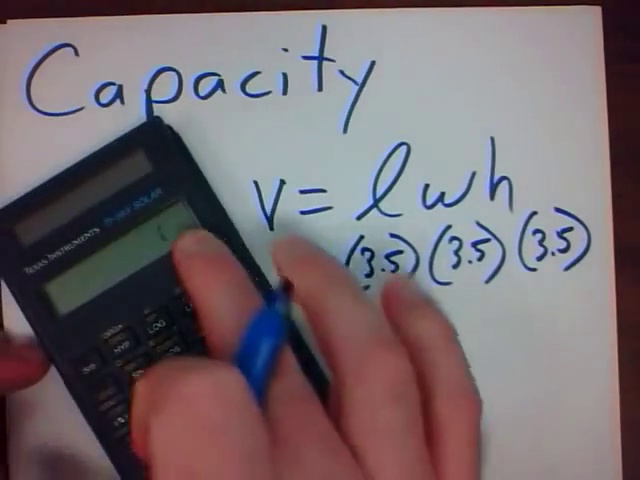 Capacity
V = lwh
(3.5) (3.5) (3.5)
TEXAS INSTRUMENTS
SOLAR
HYP
LOG